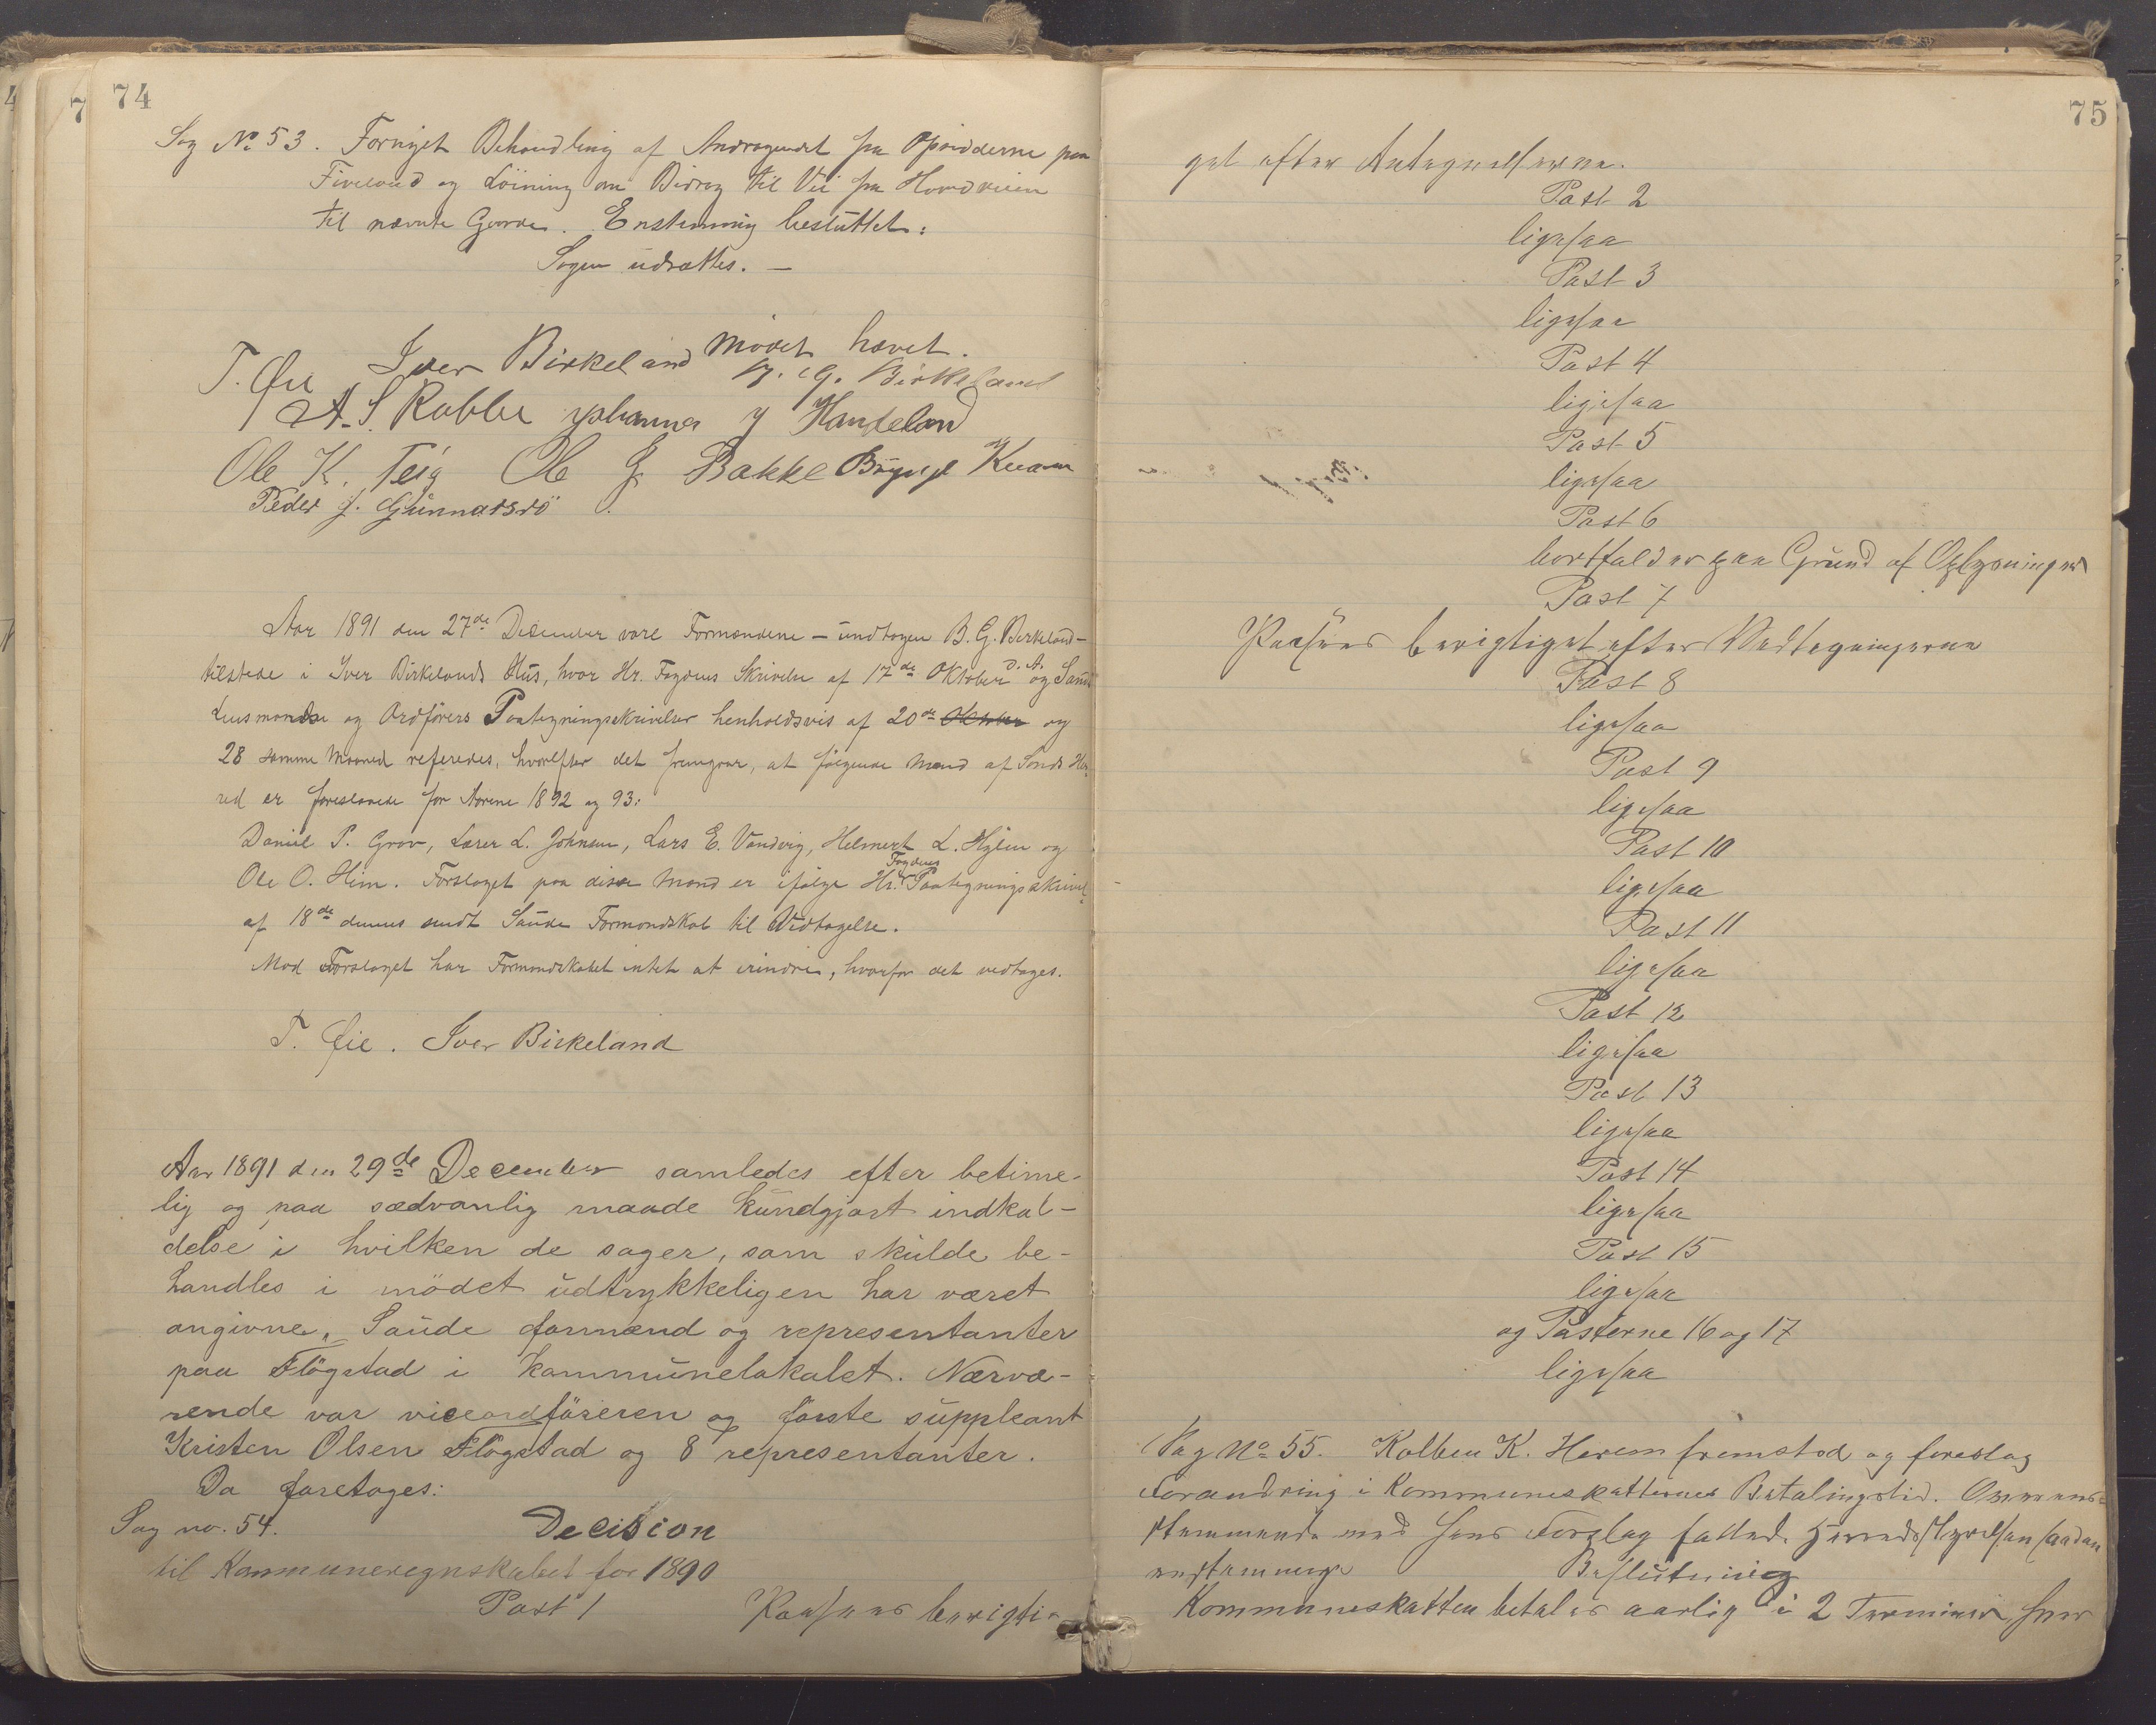 74
Sag No 53. Fornyet Behandling af Andragendet fra Opsidderne paa
Fiveland og Løining om Bidrag til Vei fra Hovedveien
til nævnte Gaarde. Enstemmig besluttet:
Sagen udsættes. —
Mødet hævet.
T. Øie Iver Birkeland B. G. Birkeland
A. S. Rabbe Johannes J Handeland
Ole K. Teig Ole G. Bakke Brynjel Kvam
Peder J. Gunnarsrö
Aar 1891 den 27de December vare Formændene — undtagen B. G. Birkeland —
tilstede i Iver Birkelands Hus, hvor Hr. Fogdens Skrivelse af 17de Oktober d. A. og Saude
Lensmands og Ordførers Paategningsskrivelser henholdsvis af 20de Oktober og
28 samme Maaned referedes, hvorefter det fremgaar, at følgende Mænd af Sands Her-
red er foreslaaede for Aarene 1892 og 93:
Daniel P. Grov, Lærer L. Johnsen, Lars E. Vandvig, Helmert L. Hylen og
Ole O. Heim. Forslaget paa disse Mænd er ifølge Hr. Fogdens Paategningsskrivel-
af 18de dennes sendt Saude Formandskab til Vedtagelse.
Mod Forslaget har Formandskabet intet at erindre, hvorfor det vedtages.
T. Øie. Iver Birkeland
Aar 1891 den 29de December samledes efter betime-
lig og paa sædvanlig maade kundgjort indkal-
delse i hvilken de sager, som skulde be-
handles i mödet udtrykkeligen har været
angivne, Saude formænd og representanter
paa Flögstad i kommunelokalet. Nærvæ-
rende var viceordföreren og förste suppleant
Kristen Olsen Flögstad og 8 representanter.
Da foretoges:
Sag no. 54. Decision
til Kommuneregnskabet for 1890
Post 1 Passeres berigti-
75
get efter Antegnelserne.
Post 2
ligesaa
Post 3
ligesaa
Post 4
ligesaa
Post 5
ligesaa
Post 6
bortfalder paa Grund af Oplysninger
Post 7
Passeres berigtiget efter Vedtegningerne
Post 8
ligesaa
Post 9
ligesaa
Post 10
ligesaa
Post 11
ligesaa
Post 12
ligesaa
Post 13
ligesaa
Post 14
ligesaa
Post 15
ligesaa
og Posterne 16 og 17
ligesaa
Sag No 55. Kolben K. Herem fremstod og foreslog
Forandring i Kommuneskatternes Betalingstid. Overens-
stemmende med hans Forslag fattede Herredsstyrelsen saadan
enstemmige Beslutning
Kommuneskatten betales aarlig i 2 Terminer, hver